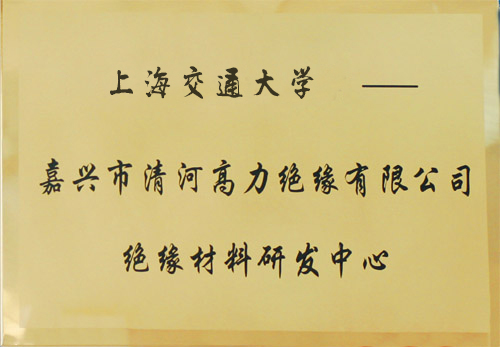 上海交通大学 ——
嘉兴市清河高力绝缘有限公司
绝缘材料研发中心